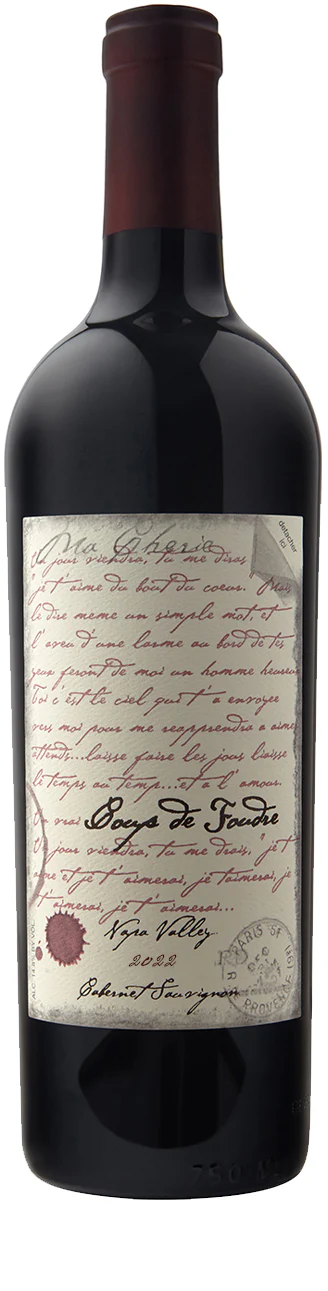 Ma Cherie
detacher
ici
Un jour viendra, tu me diras
"je t'aime du bout du coeur. Mais
le dire meme un simple mot, et
l'aveu d'une larme au bord de tes
yeux feront de moi un homme heureux
Toi c'est le ciel qui t'a envoyee
vers moi pour me reapprendre a aimer
attends...laisse faire les jours liaisse
le temps au temp...et a l'amour.
Un vrai Coup de Foudre
Un jour viendra, tu me drais, "je t'
aime et je t'aimerai, je t'aimerai, je
t'aimerai, je t'aimerai...
Napa Valley
2022
Cabernet Sauvignon
ALC. 14.8% BY VOL.
PARIS 5E (86)
PROVENCE
750 ML